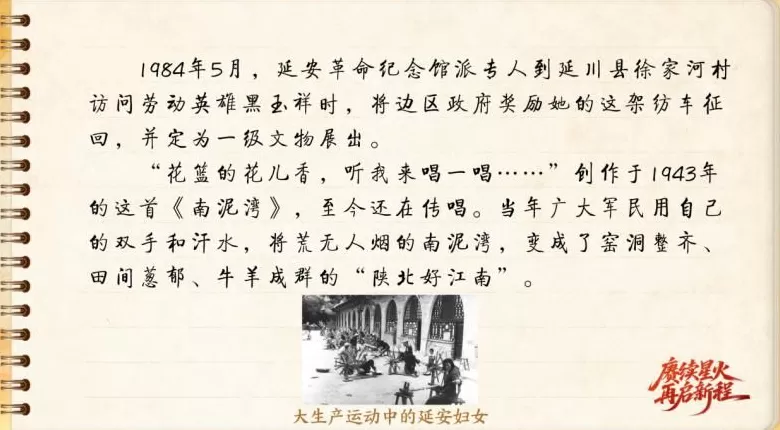 1984年5月，延安革命纪念馆派专人到延川县徐家河村
访问劳动英雄黑玉祥时，将边区政府奖励她的这架纺车征
回，并定为一级文物展出。
“花篮的花儿香，听我来唱一唱……”创作于1943年
的这首《南泥湾》，至今还在传唱。当年广大军民用自己
的双手和汗水，将荒无人烟的南泥湾，变成了窑洞整齐、
田间葱郁、牛羊成群的“陕北好江南”。
大生产运动中的延安妇女
赓续星火
再启新程